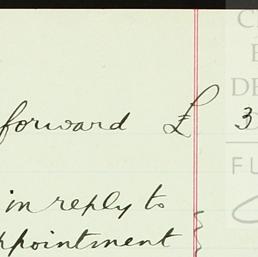 forward £ 3
in reply to
ppointment